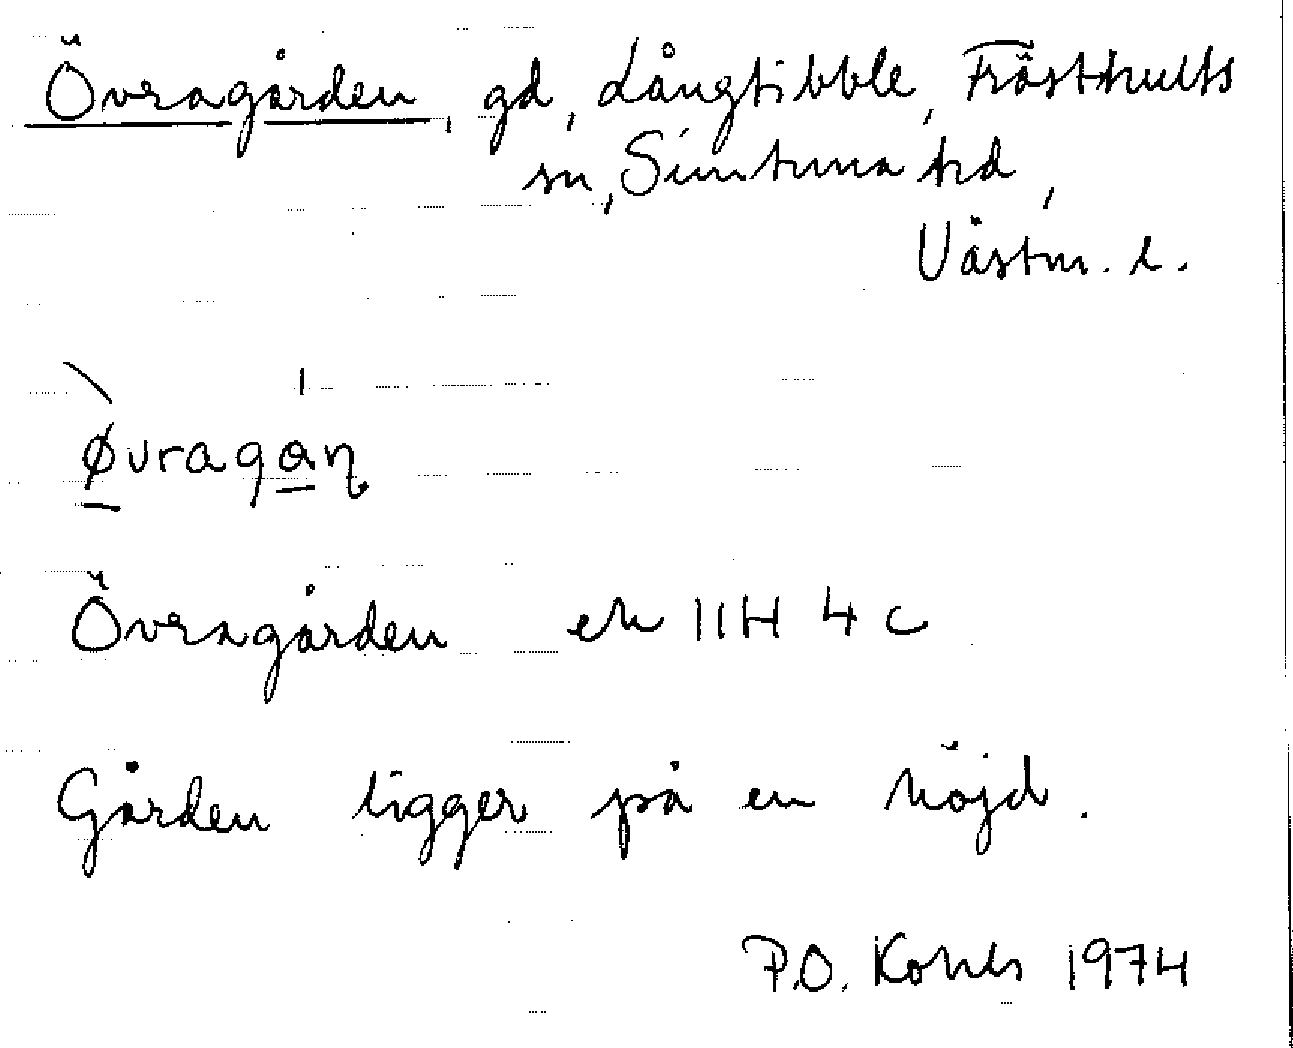 Övragården, gd, Långtibble, Frösthults
sn, Simtuna hd,
Västm. l.
øvragaṇ
Övragården ek 11H 4 c
Gården ligger på en höjd.
P.O. 1974